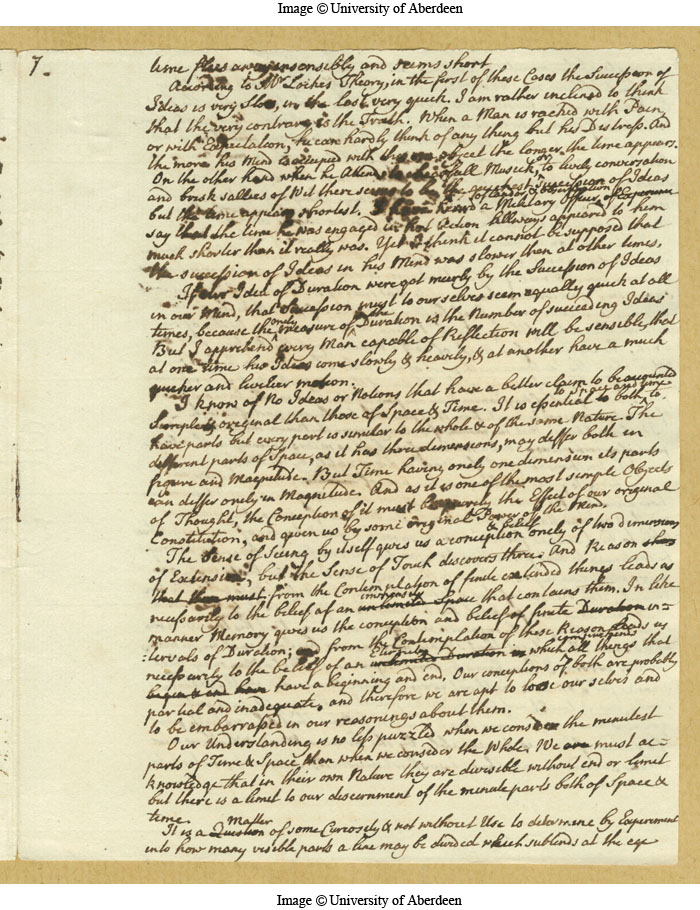 Image © University of Aberdeen
7.
time flies away insensibly and seems short
According to Mr Lockes Theory, in the first of these Cases the Succession of
Ideas is very Slow, in the last very quick. I am rather inclined to think
that the very contrary is the Truth. When a Man is racked with Pain,
or with Expectation, he can hardly think of any thing but his Distress. And
the more his Mind is occupied with this one object the longer the time appears.
On the other hand when he Attends to chearfull Musick, or to lively conversation
and brisk sallies of Wit there seems to be the quickest succession of Ideas
but the time appears shortest. I have heard a Military Officer of Candor & observation & of Experience
say that the time he was engaged in hot Action Allways appeared to him
much shorter than it really was. Yet I think it cannot be supposed that
the succession of Ideas in his Mind was slower then at other times,
If our Idea of Duration were got meerly by the Succession of Ideas
in our Mind, that Succession must to ourselves seem equally quick at all
times, because the onely measure of the Duration is the Number of succeeding Ideas
But I apprehend every Man capable of Reflection will be sensible, that
at one time his Ideas come slowly & heavily, & at another have a much
quicker and livelier motion.
I know of No Ideas or Notions that have a better claim to be accounted
Simple & original than those of Space & Time. It is essential to both to Space and time to
have parts but every part is similar to the whole & of the same Nature. The
different parts of Space, as it has three dimensions, may differ both in
figure and Magnitude. But Time having onely one dimension its parts
can differ onely in Magnitude. And as it is one of the most simple Objects
of Thought, the Conception of it must be purely the Effect of our original
Constitution, and given us by some original Power of the Mind.
The Sense of Seeing by itself gives us a conception & belief onely of two dimensions
of Extension, but the Sense of Touch discovers three. And Reason shews
that there must from the Contemplation of finite extended things leads us
necessarily to the belief of an unlimited immensity Space that contains them. In like
manner Memory gives us the conception and belief of finite Duration in-
tervals of Duration; and from the Contemplation of these Reason leads us
necessarily to the belief of an unlimited Duration in Eternity which comprehends all things that
begin & end have have a beginning and end. Our conceptions of both are probably
partial and inadequate, and therefore we are apt to loose our selves and
to be embarrassed in our reasonings about them.
Our Understanding is no less puzzled when we consider the minutest
parts of Time & Space than when we consider the Whole. We are must ac-
knowledge that in their own Nature they are divisible without end or limit
but there is a limit to our discernment of the minute parts both of Space &
time.
It is a Question Matter of some Curiosity & not without Use to determine by Experiment
into how many visible parts a line may be divided which subtends at the eye
Image © University of Aberdeen